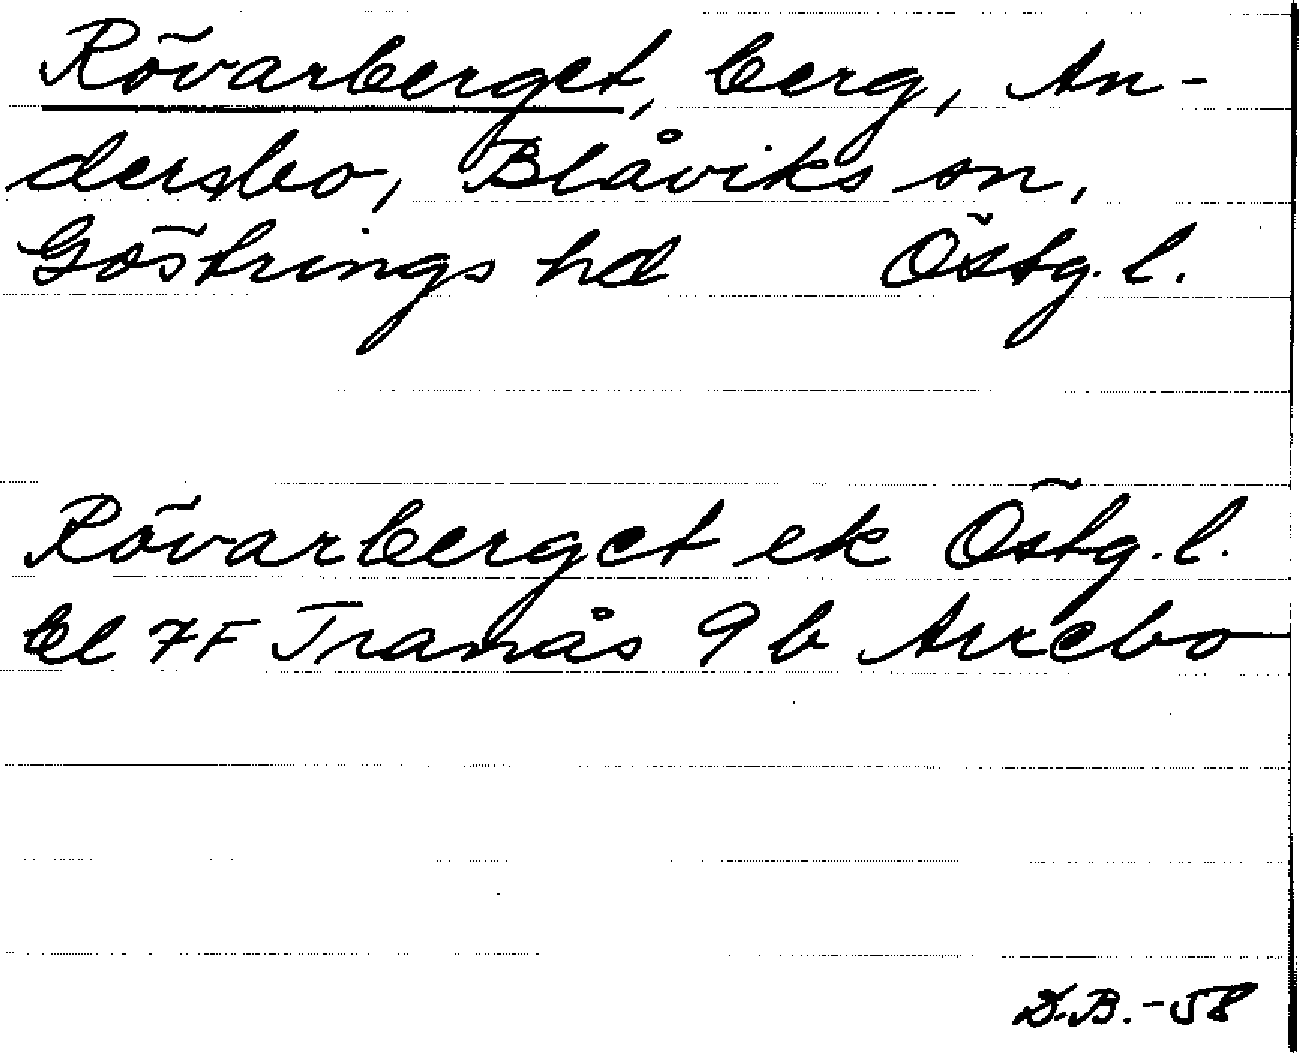 Rövarberget, berg, An-
dersbo, Blåviks sn,
Göstrings hd Östg. l.
Rövarberget ek Östg. l.
bl 7F Tranås 9 b Arrebo
D.B. -58